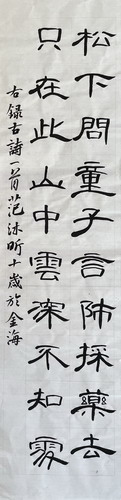 松下問童子言師採藥去
只在此山中雲深不知處
右録古詩一首范沐昕十歲於金海